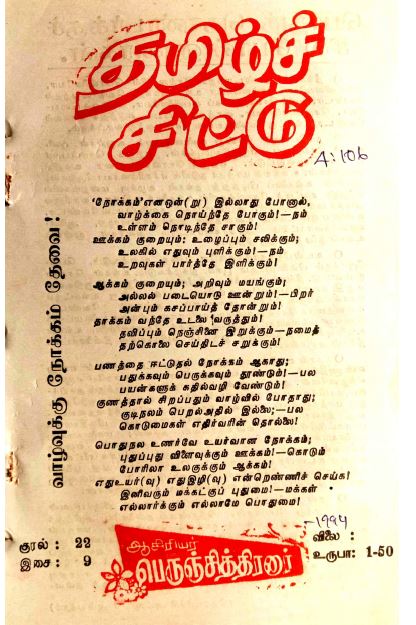 தமிழ்ச்
சிட்டு
A:106
வாழ்வுக்கு நோக்கம் தேவை!
'நோக்கம்'எனஒன்(று) இல்லாது போனால்,
வாழ்க்கை தொய்ந்தே போகும்!—நம்
உள்ளம் நொடிந்தே சாகும்!
ஊக்கம் குறையும்; உழைப்பும் சலிக்கும்;
உலகில் எதுவும் புளிக்கும்!—நம்
உறவுகள் பார்த்தே இளிக்கும்!
ஆக்கம் குறையும்; அறிவும் மயங்கும்;
அல்லல் படையொடு ஊன்றும்!—பிறர்
அன்பும் கசப்பாய்த் தோன்றும்!
தாக்கம் வந்தே உடலை வருத்தும்!
தவிப்பும் நெஞ்சினை இறுக்கும்—நமைத்
தற்கொலை செய்திடச் சறுக்கும்!
பணத்தை ஈட்டுதல் நோக்கம் ஆகாது;
பதுக்கவும் பெருக்கவும் தூண்டும்!—பல
பயன்களுக் குதில்வழி வேண்டும்!
குணத்தால் சிறப்பதும் வாழ்வில் போதாது;
குடிநலம் பெறல்அதில் இல்லை;—பல
கொடுமைகள் எதிர்வரின் தொல்லை!
பொதுநல உணர்வே உயர்வான நோக்கம்;
புதுப்புது விளைவுக்கும் ஊக்கம்!—கொடும்
போரிலா உலகுக்கும் ஆக்கம்!
எதுஉயர்(வு) எதுஇழி(வு) என்றெண்ணிச் செய்க!
இனிவரும் மக்கட்குப் புதுமை!—மக்கள்
எல்லார்க்கும் எல்லாமே பொதுமை!
குரல்: 22
இசை: 9
ஆசிரியர்
பெருஞ்சித்திரனார்
-1994
விலை:
உருபா: 1-50